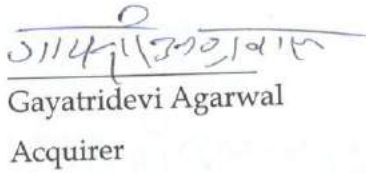 गायत्रीअग्रवाल
Gayatridevi Agarwal
Acquirer